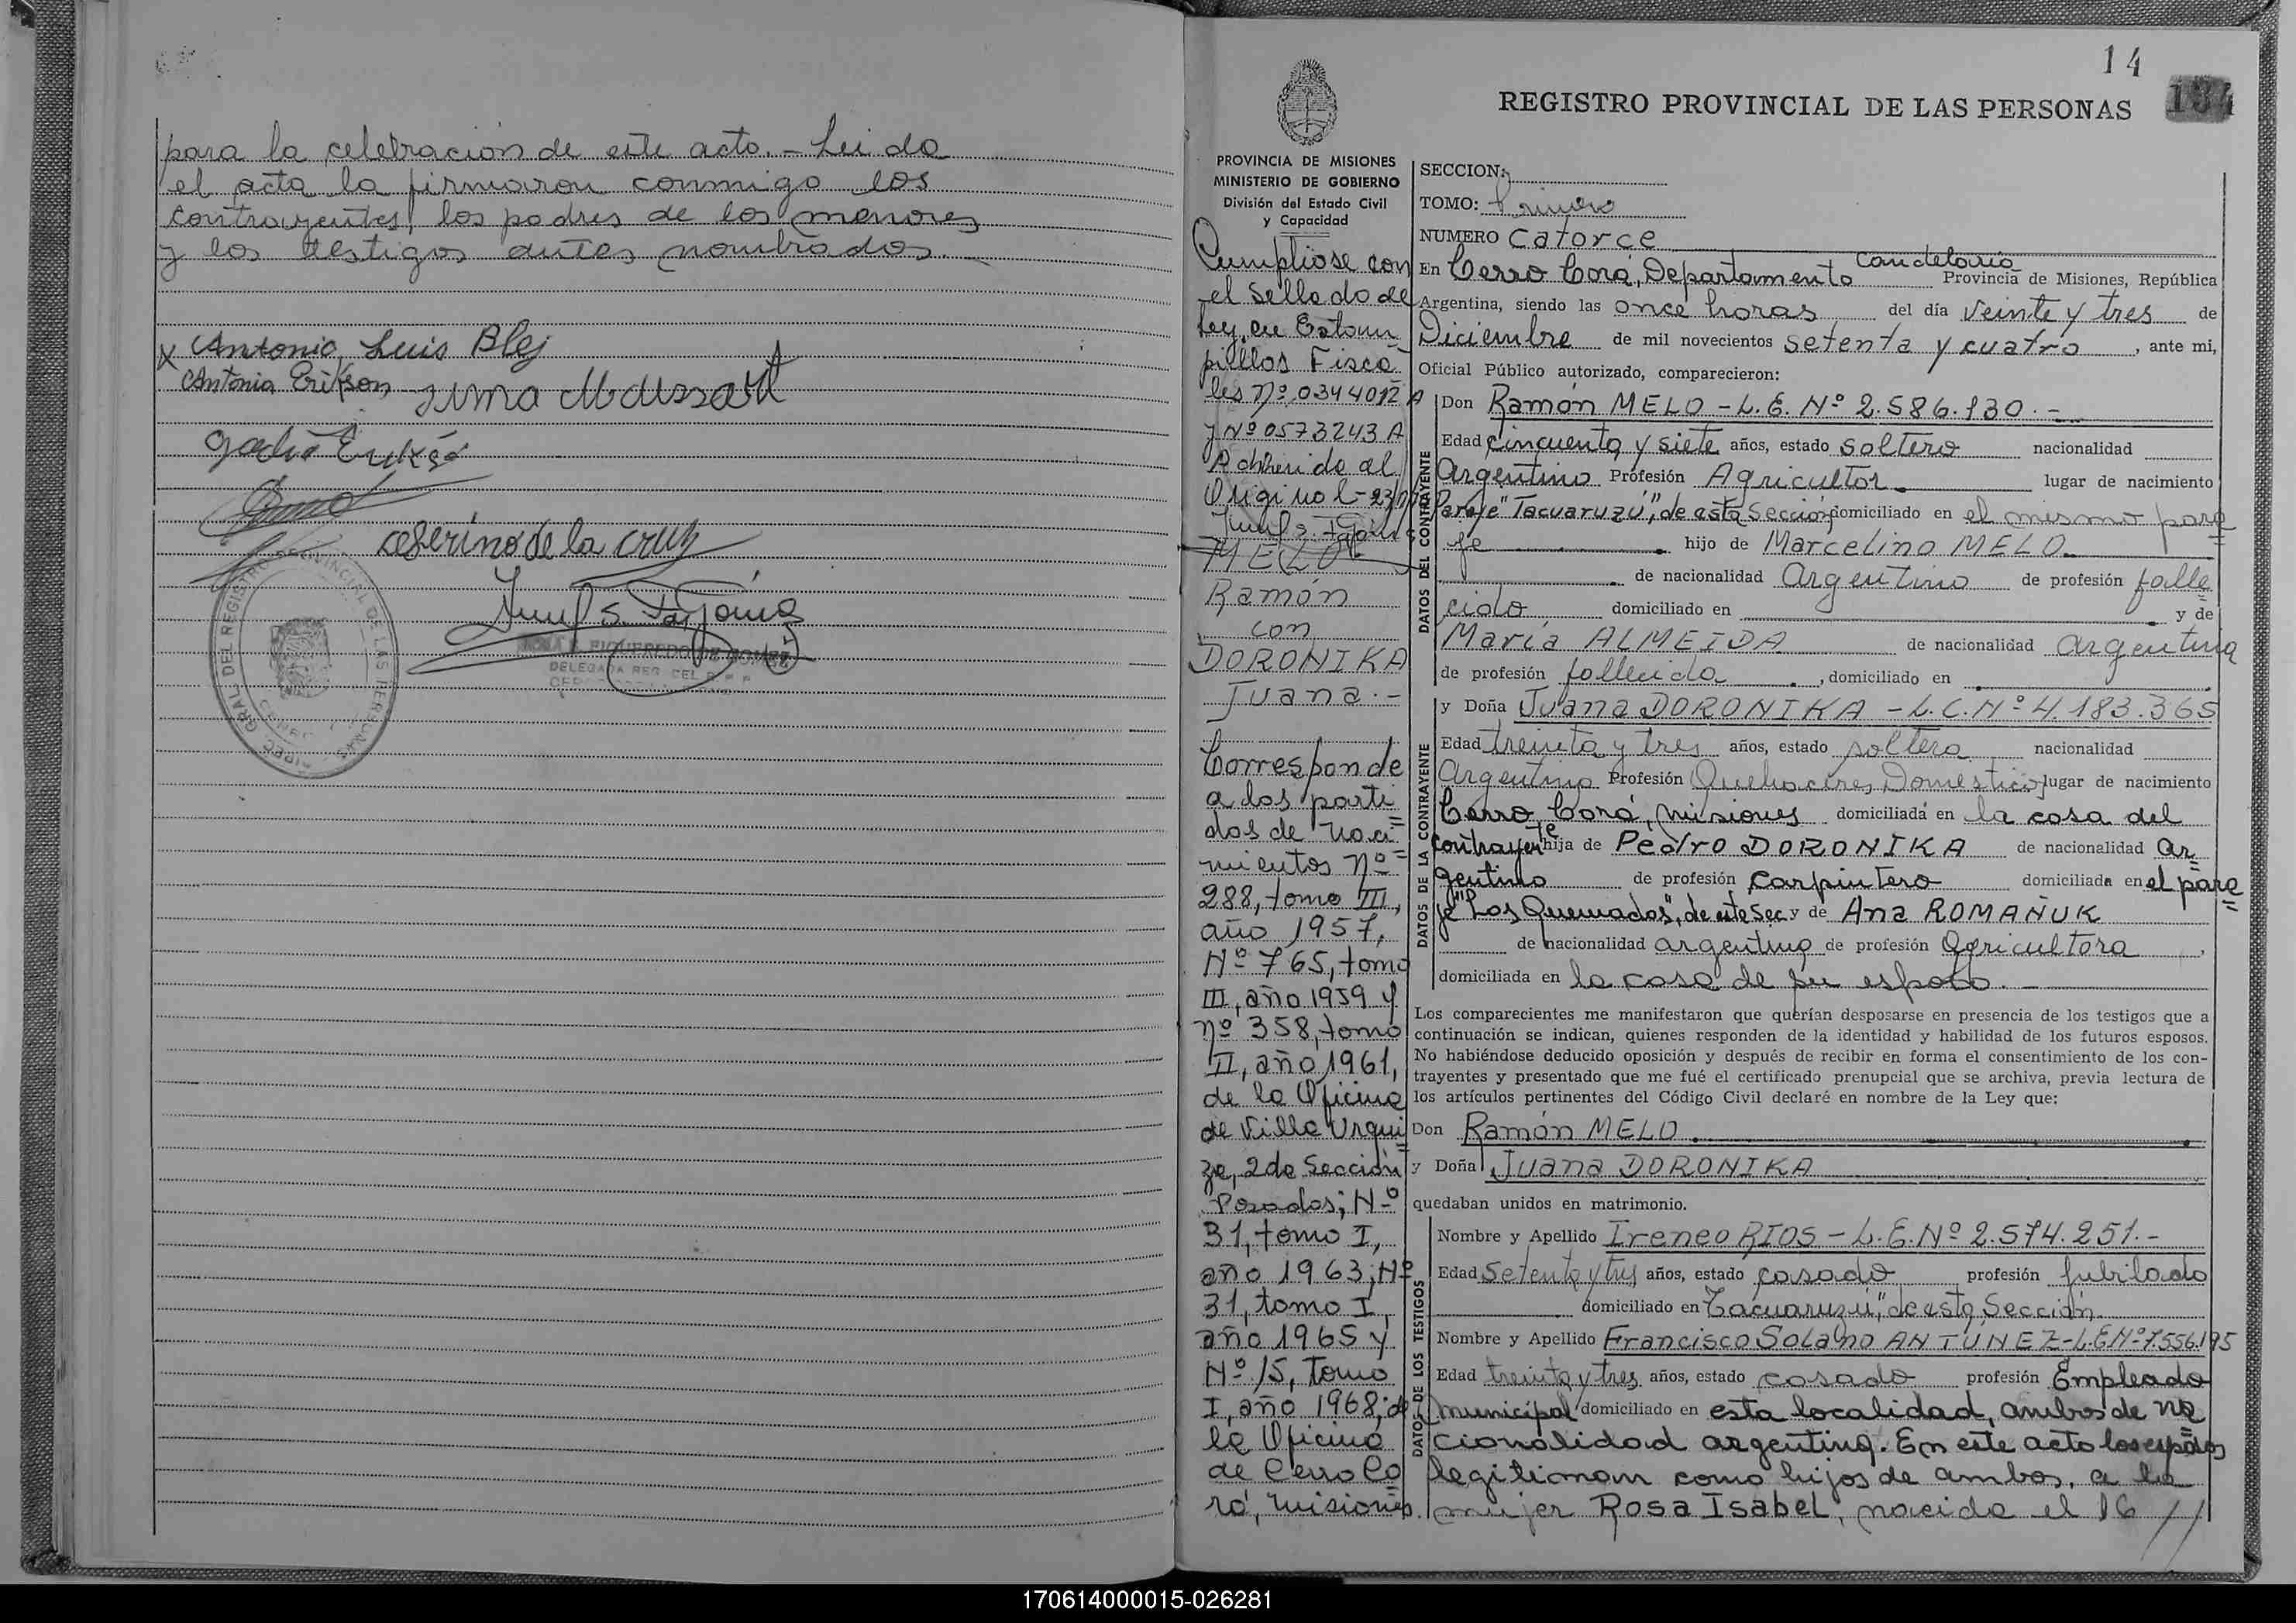 para la celebración de este acto. - Leída
el acta la firmaron conmigo los
contrayentes, los padres de los menores
y los testigos antes nombrados. -
x Antonio Luis Blej
Antonia Erikson
ceferino de la cruz
DELEGADA REG. DEL R. P. P.
14
REGISTRO PROVINCIAL DE LAS PERSONAS
PROVINCIA DE MISIONES
MINISTERIO DE GOBIERNO
División del Estado Civil
y Capacidad
Cumplióse con
el Sellado de
Ley en Estam=
pillas Fisca=
les Nº 0344012 A
y Nº 0573243 A
Adherido al
Original-23/
MELO
Ramón
con
DORONIKA
Juana.-
Corresponde
a las parti=
das de naci=
mientos Nº=
288, tomo III,
año 1957,
Nº 765, tomo
III, año 1959 y
Nº 358, tomo
II, año 1961,
de la Oficina
de Villa Urqui=
za, 2da Sección
Posadas; Nº
31, tomo I,
año 1963; Nº
31, tomo I,
año 1965 y
Nº 15, Tomo
I, año 1968; de
la Oficina
de Cerro Co=
rá, Misiones.
SECCION:
TOMO: Primero
NUMERO Catorce
En Cerro Corá, Departamento Candelaria Provincia de Misiones, República
Argentina, siendo las once horas del día veinte y tres de
Diciembre de mil novecientos setenta y cuatro, ante mi,
Oficial Público autorizado, comparecieron:
DATOS DEL CONTRAYENTE
Don Ramón MELO - L.E. Nº 2.586.130.-
Edad cincuenta y siete años, estado soltero nacionalidad
Argentino Profesión Agricultor lugar de nacimiento
Paraje "Tacuaruzú", de esta Sección domiciliado en el mismo para=
je hijo de Marcelino MELO
de nacionalidad Argentino de profesión falle=
cido domiciliado en y de
María ALMEIDA de nacionalidad argentina
de profesión fallecida, domiciliado en
DATOS DE LA CONTRAYENTE
y Doña Juana DORONIKA - L.C. Nº 4.183.365
Edad treinta y tres años, estado soltera nacionalidad
Argentina Profesión Quehaceres Domésticos lugar de nacimiento
Cerro Corá, Misiones domiciliada en la casa del
contrayente hija de Pedro DORONIKA de nacionalidad ar=
gentino de profesión carpintero domiciliada en el para=
je "Los Quemados", de este Sec y de Ana ROMAÑUK
de nacionalidad argentina de profesión Agricultora,
domiciliada en la casa de su esposo. -
Los comparecientes me manifestaron que querían desposarse en presencia de los testigos que a
continuación se indican, quienes responden de la identidad y habilidad de los futuros esposos.
No habiéndose deducido oposición y después de recibir en forma el consentimiento de los con-
trayentes y presentado que me fué el certificado prenupcial que se archiva, previa lectura de
los artículos pertinentes del Código Civil declaré en nombre de la Ley que:
Don Ramón MELO
y Doña Juana DORONIKA
quedaban unidos en matrimonio.
DATOS DE LOS TESTIGOS
Nombre y Apellido Ireneo RIOS - L.E. Nº 2.574.251.-
Edad Setenta y tres años, estado casado profesión Jubilado
domiciliado en Tacuaruzú", de esta Sección
Nombre y Apellido Francisco Solano ANTUNEZ - L.E Nº 7.556.195
Edad treinta y tres años, estado casado profesión Empleado
municipal domiciliado en esta localidad, ambos de na=
cionalidad argentina. En este acto los esposos
legitiman como hijos de ambos, a la
mujer Rosa Isabel, nacida el 16 //
170614000015-026281